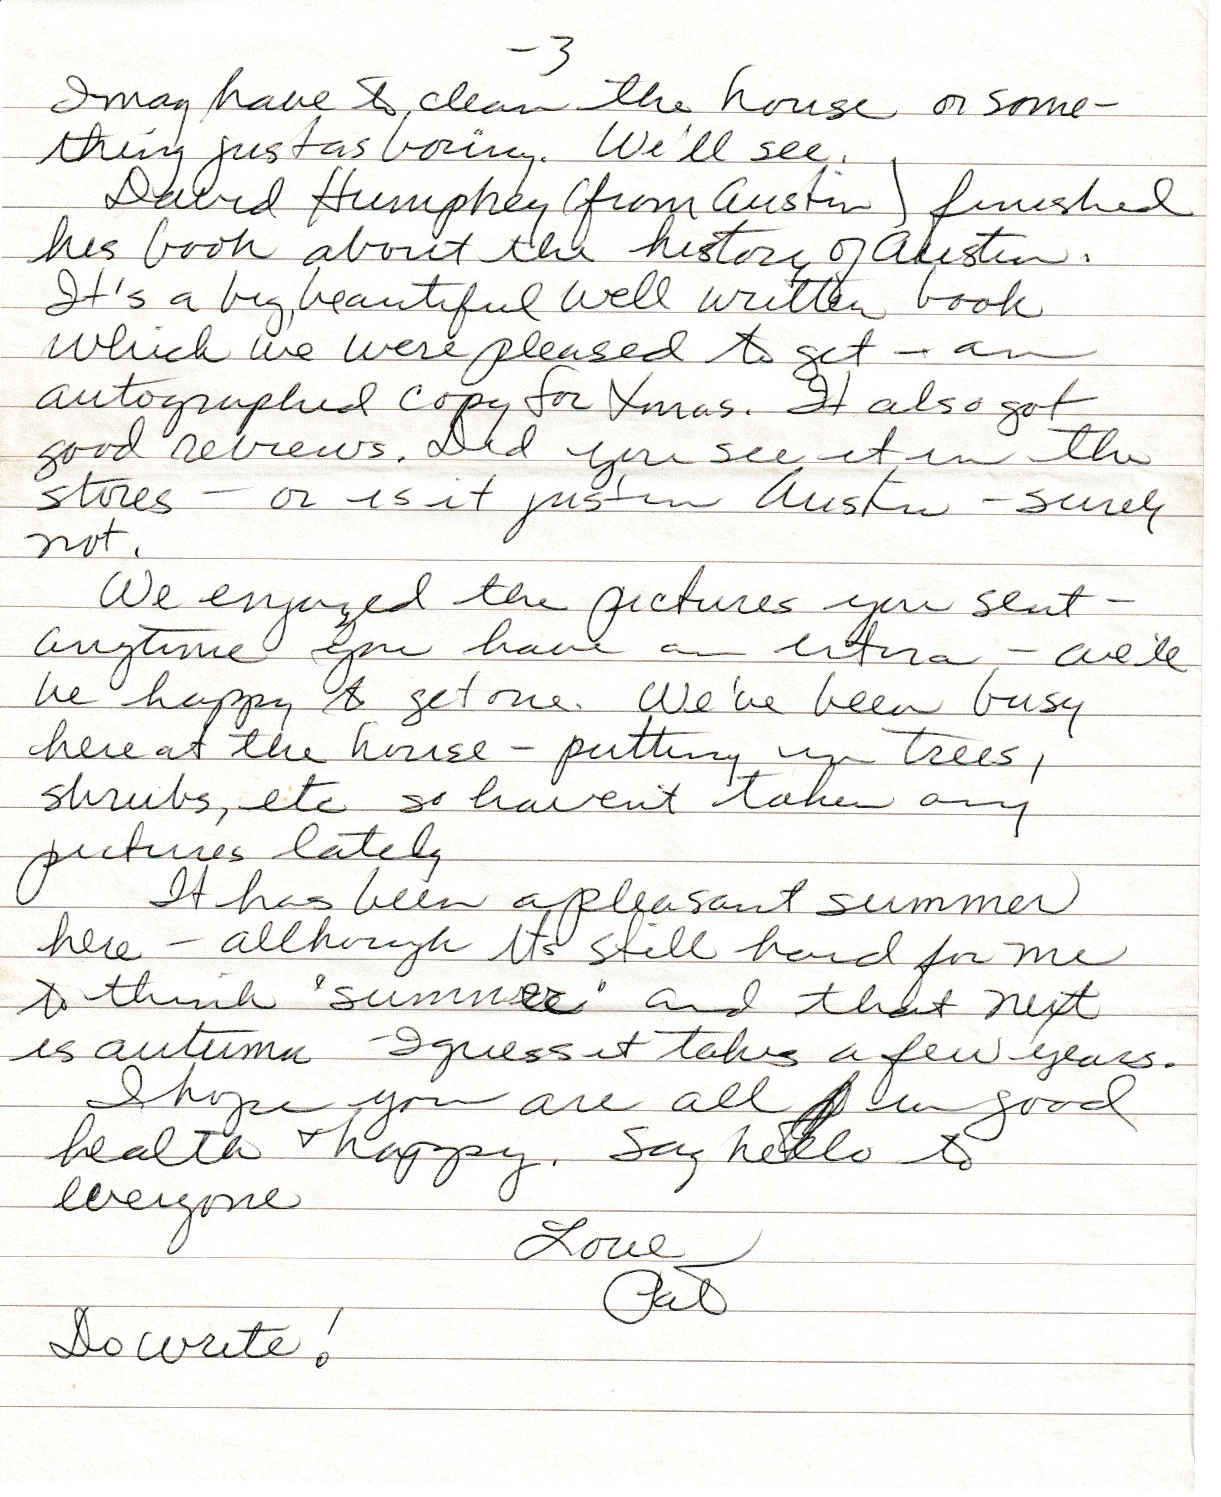 -3
I may have to clean the house or some-
thing just as boring. We'll see.
David Humphrey (from Austin) finished
his book about the history of Austin.
It's a big, beautiful well written book
which we were pleased to get - an
autographed copy for Xmas. It also got
good reviews. Did you see it in the
stores - or is it just in Austin - surely
not.
We enjoyed the pictures you sent -
anytime you have an extra - we'll
be happy to get one. We've been busy
here at the house - putting in trees,
shrubs, etc so haven't taken any
pictures lately
It has been a pleasant summer
here - although it's still hard for me
to think "summer" and that next
is autumn - I guess it takes a few years.
I hope you are all in good
health + happy. Say hello to
everyone
Love
Pat
Do write!